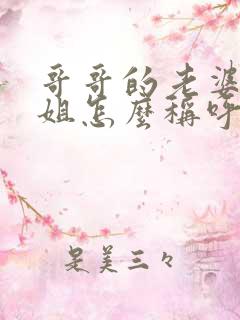 哥哥的老婆
姐怎麼稱呼
是美三々